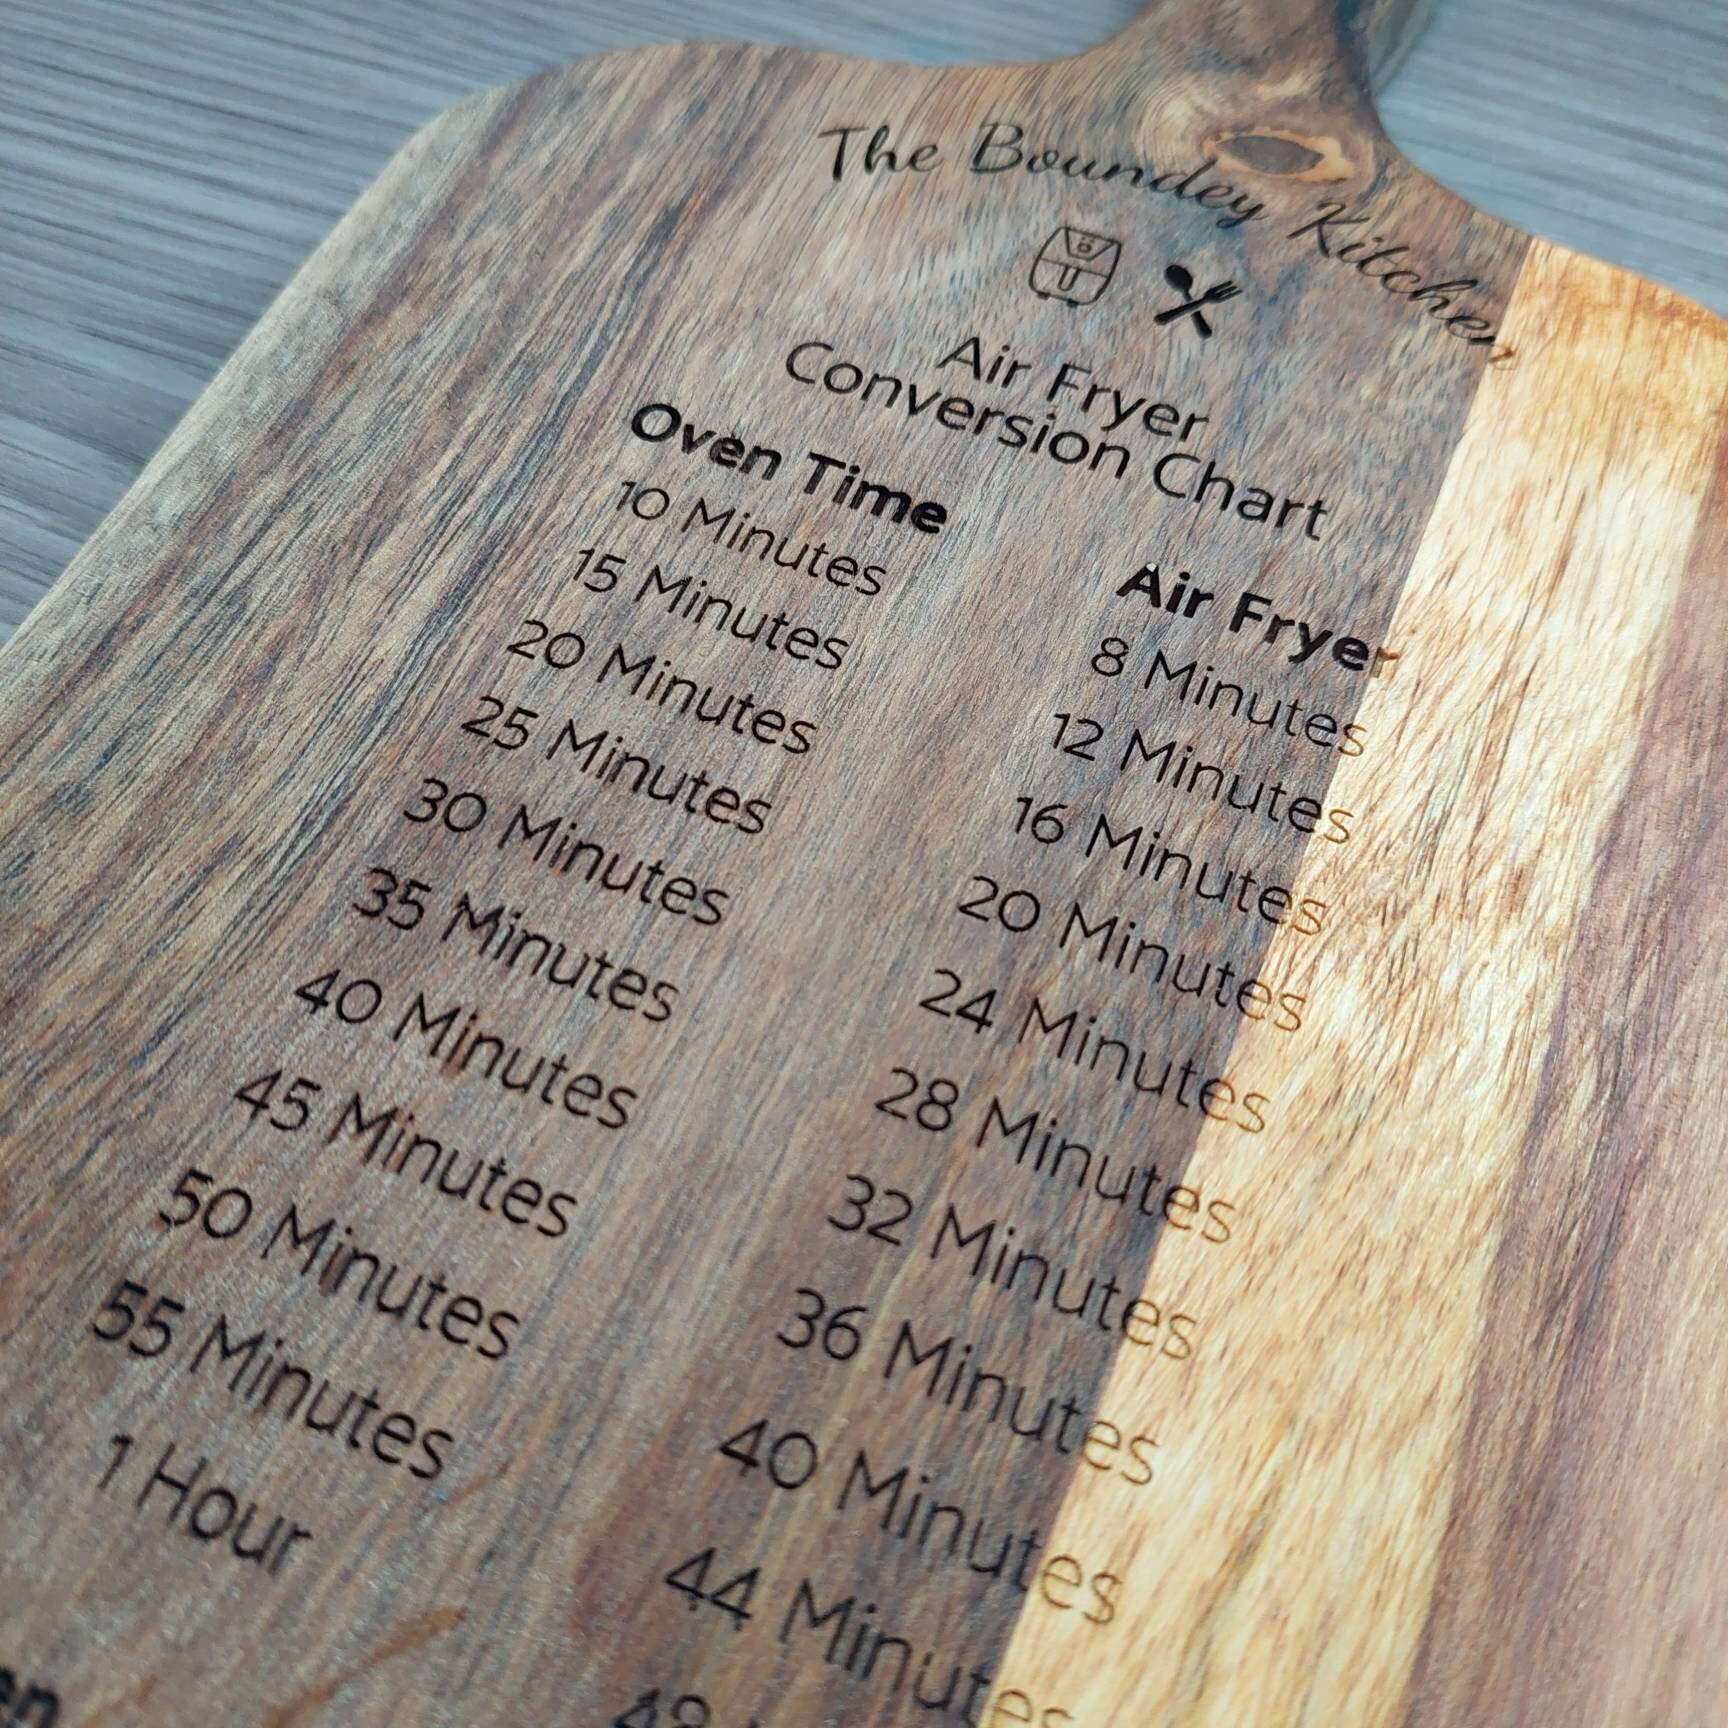 The Boundey Kitchen
Air Fryer
Conversion Chart
Oven Time Air Fryer
10 Minutes 8 Minutes
15 Minutes 12 Minutes
20 Minutes 16 Minutes
25 Minutes 20 Minutes
30 Minutes 24 Minutes
35 Minutes 28 Minutes
40 Minutes 32 Minutes
45 Minutes 36 Minutes
50 Minutes 40 Minutes
55 Minutes 44 Minutes
1 Hour 48